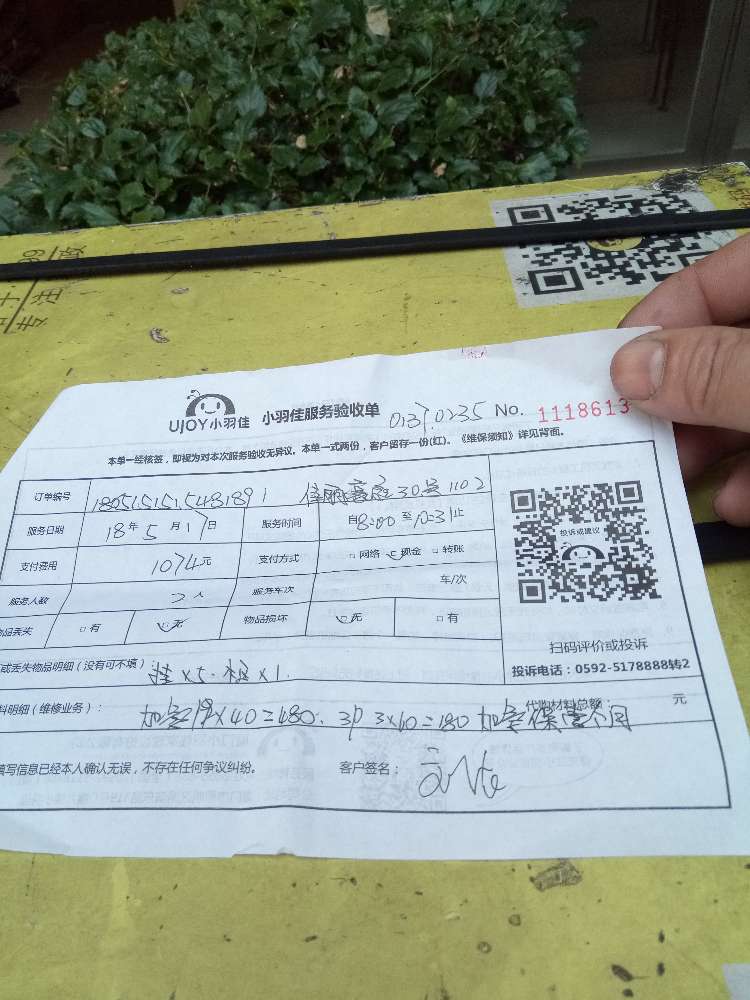 专注
UJOY小羽佳 小羽佳服务验收单 0137.0235 No. 1118613
本单一经核签，即视为对本次服务验收无异议。本单一式两份，客户留存一份(红)。《维保须知》详见背面。
订单编号 30号1102
服务日期 18年5月17日 服务时间 自8:00至 止
支付费用 1074元 支付方式 □网络 □现金 □转账
服务人数 人 服务车次 车/次
物品丢失 □有 □无 物品损坏 □无 □有
或丢失物品明细（没有可不填） 挂×5. 柜×1.
料明细（维修业务）： 代购材料总额： 元
×40=480. 3P 3×60=180
填写信息已经本人确认无误，不存在任何争议纠纷。 客户签名：
投诉或建议
扫码评价或投诉
投诉电话：0592-5178888转2